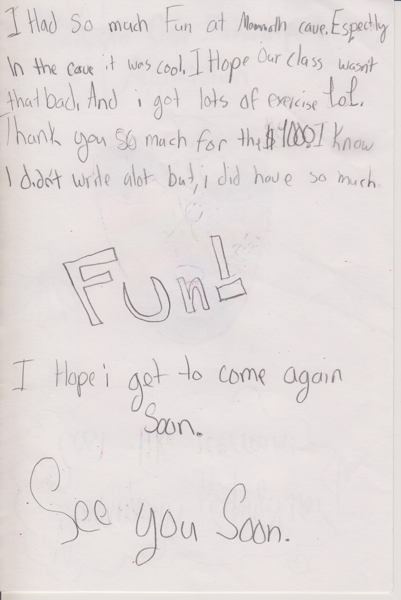 I Had so much Fun at Mammoth cave. Espectly
In the cave it was cool, I Hope our class wasn't
that bad, And i got lots of exercise lol.
Thank you so much for the $1000! I know
I didn't write alot but, i did have so much
Fun!
I Hope i get to come again
Soon.
See you Soon.